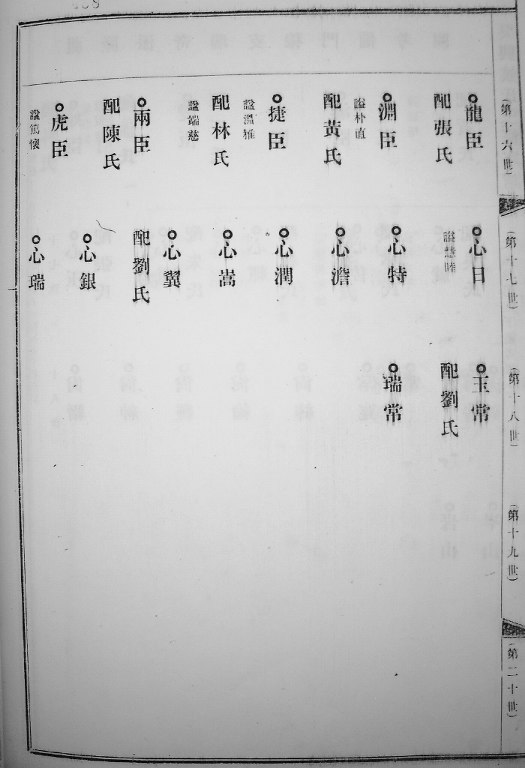 （第十六世）
（第十七世）
（第十八世）
（第十九世）
（第二十世）
龍臣
配張氏
淵臣
諡朴直
配黃氏
捷臣
配林氏
諡端慈
兩臣
配陳氏
虎臣
諡篤懷
心日
心特
心澹
心潤
心嵩
心翼
配劉氏
心銀
心瑞
玉常
配劉氏
瑞常